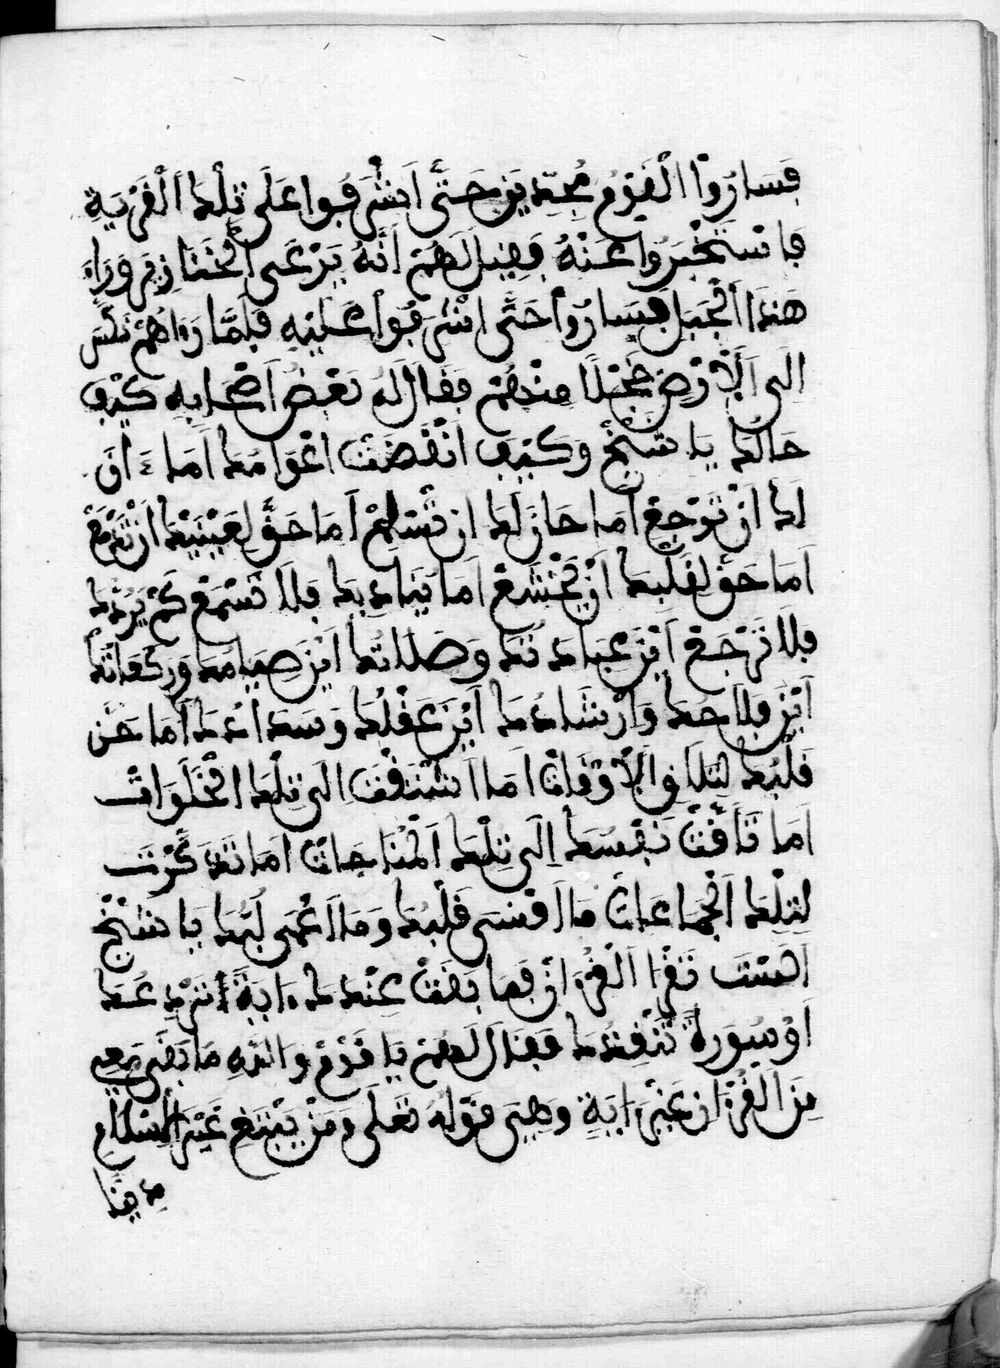 فَسَارُوا الْقَوْمُ مُجِدِّينَ حَتَّى اَشْرَفُوا عَلَى تِلْكَ الْقَرْيَةِ
فَاسْتَخْبَرُوا عَنْهُ فَقِيلَ لَهُمْ اَنَّهُ يَرْعَى الْخَنَازِيرَ وَرَاءَ
هَذَا الْجَبَلِ فَسَارُوا حَتَّى اشْرَفُوا عَلَيْهِ فَلَمَّا رَءَاهُمْ نَكَّسَ
اِلَى الْاَرْضِ خَجَلًا مِنْهُمْ فَقَالَ لَهُ بَعْضُ اَصْحَابِهِ كَيْفَ
حَالُكَ يَا شَيْخُ وَكَيْفَ انْقَضَتْ اعْوَامُكَ اَمَا ءَانَ
لَكَ اَنْ تَرْجِعَ اَمَا حَانَ لَكَ اَنْ تُسْلِمَ اَمَا حَقَّ لِعَيْنَيْكَ اَنْ تَدْمَعَ
اَمَا حَقَّ لِقَلْبِكَ اَنْ يَخْشَعَ اَمَا يُنَادِيكَ فَلَا تَسْمَعْ كَمْ يَرُدُّكَ
فَلَا تَرْجَعْ اَيْنَ عِبَادَتُكَ وَصَلَاتُكَ اَيْنَ صِيَامُكَ وَرَكَعَاتُكَ
اَيْنَ فَلَاحُكَ وَاِرْشَادُكَ اَيْنَ عَقْلُكَ وَسَدَادُكَ اَمَا حَنَّ
قَلْبُكَ لِتِلْكَ الْاَوْقَاتِ اَمَا اشْتَقْتَ اِلَى تِلْكَ الْخَلَوَاتِ
اَمَا تَاقَتْ نَفْسُكَ اِلَى تِلْكَ الْمُنَاجَاتِ اَمَا تَذَكَّرْتَ
لِتِلْكَ الْجَمَاعَاتِ مَا اَقْسَى قَلْبُكَ وَمَا اَعْمَى لُبُّكَ يَا شَيْخُ
اَلَسْتَ تَقْرَا الْقُرْءَانَ فَمَا بَقَتْ عِنْدَكَ ءَايَةٌ تَرُدُّكَ
اَوْ سُورَةٌ تُنْقِذُكَ فَقَالَ لَهُمْ يَا قَوْمُ وَاللَّهِ مَا بَقَى مَعِي
مِنَ الْقُرْءَانِ غَيْرُ ءَايَةٍ وَهِيَ قَوْلُهُ تَعَلَى وَمَنْ يَبْتَغِ غَيْرَ الْاِسْلَامِ
دِينًا